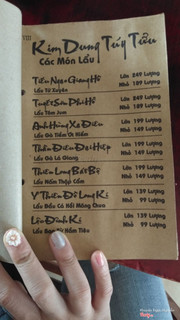 VIII
Kim Dung Túy Tửu
Các Món Lẩu
Tiếu Ngạo Giang Hồ Lớn 249 Lượng
Lẩu Tứ Xuyên Nhỏ 189 Lượng
Tuyết Sơn Phi Hồ Lớn 249 Lượng
Lẩu Tôm Nhỏ 189 Lượng
Anh Hùng Xạ Điêu Lớn 199 Lượng
Lẩu Gà Tiềm Ớt Hiểm Nhỏ 149 Lượng
Thần Điêu Đại Hiệp Lớn 199 Lượng
Lẩu Gà Lá Giang Nhỏ 149 Lượng
Thiên Long Bát Bộ Lớn 199 Lượng
Lẩu Nấm Thập Cẩm Nhỏ 149 Lượng
Ỷ Thiên Đồ Long Ký Lớn 139 Lượng
Lẩu Đầu Cá Hồi Măng Chua Nhỏ 99 Lượng
Lộc Đỉnh Ký Lớn 139 Lượng
Lẩu Nấm Nhỏ 99 Lượng